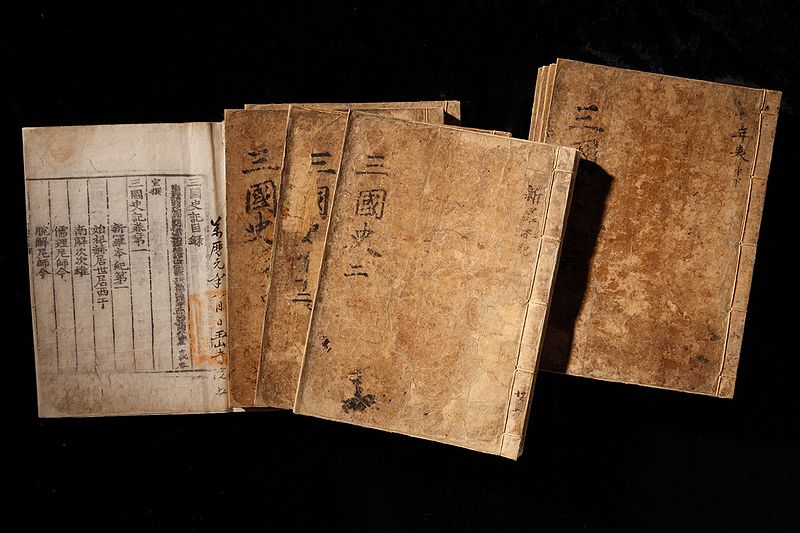 三國史記目錄
宣撰
三國史記卷第一
新羅本紀第一
始祖赫居世居西干
南解次次雄
儒理尼師今
脫解尼師今
元年八月日玉山
三國史
三國
三國史二
新羅本紀
三國
年表